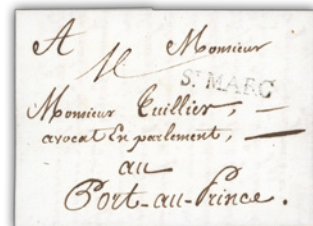 A Monsieur
ST MARC
Monsieur Tuillier,
avocat En parlement,
au
Port-au-Prince.